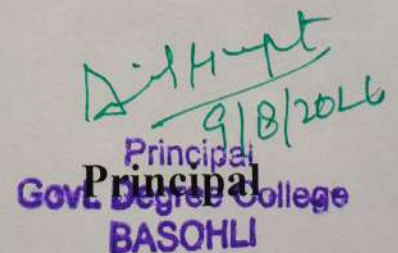 9/8/2026
Principal
Principal
Govt. Degree College
BASOHLI